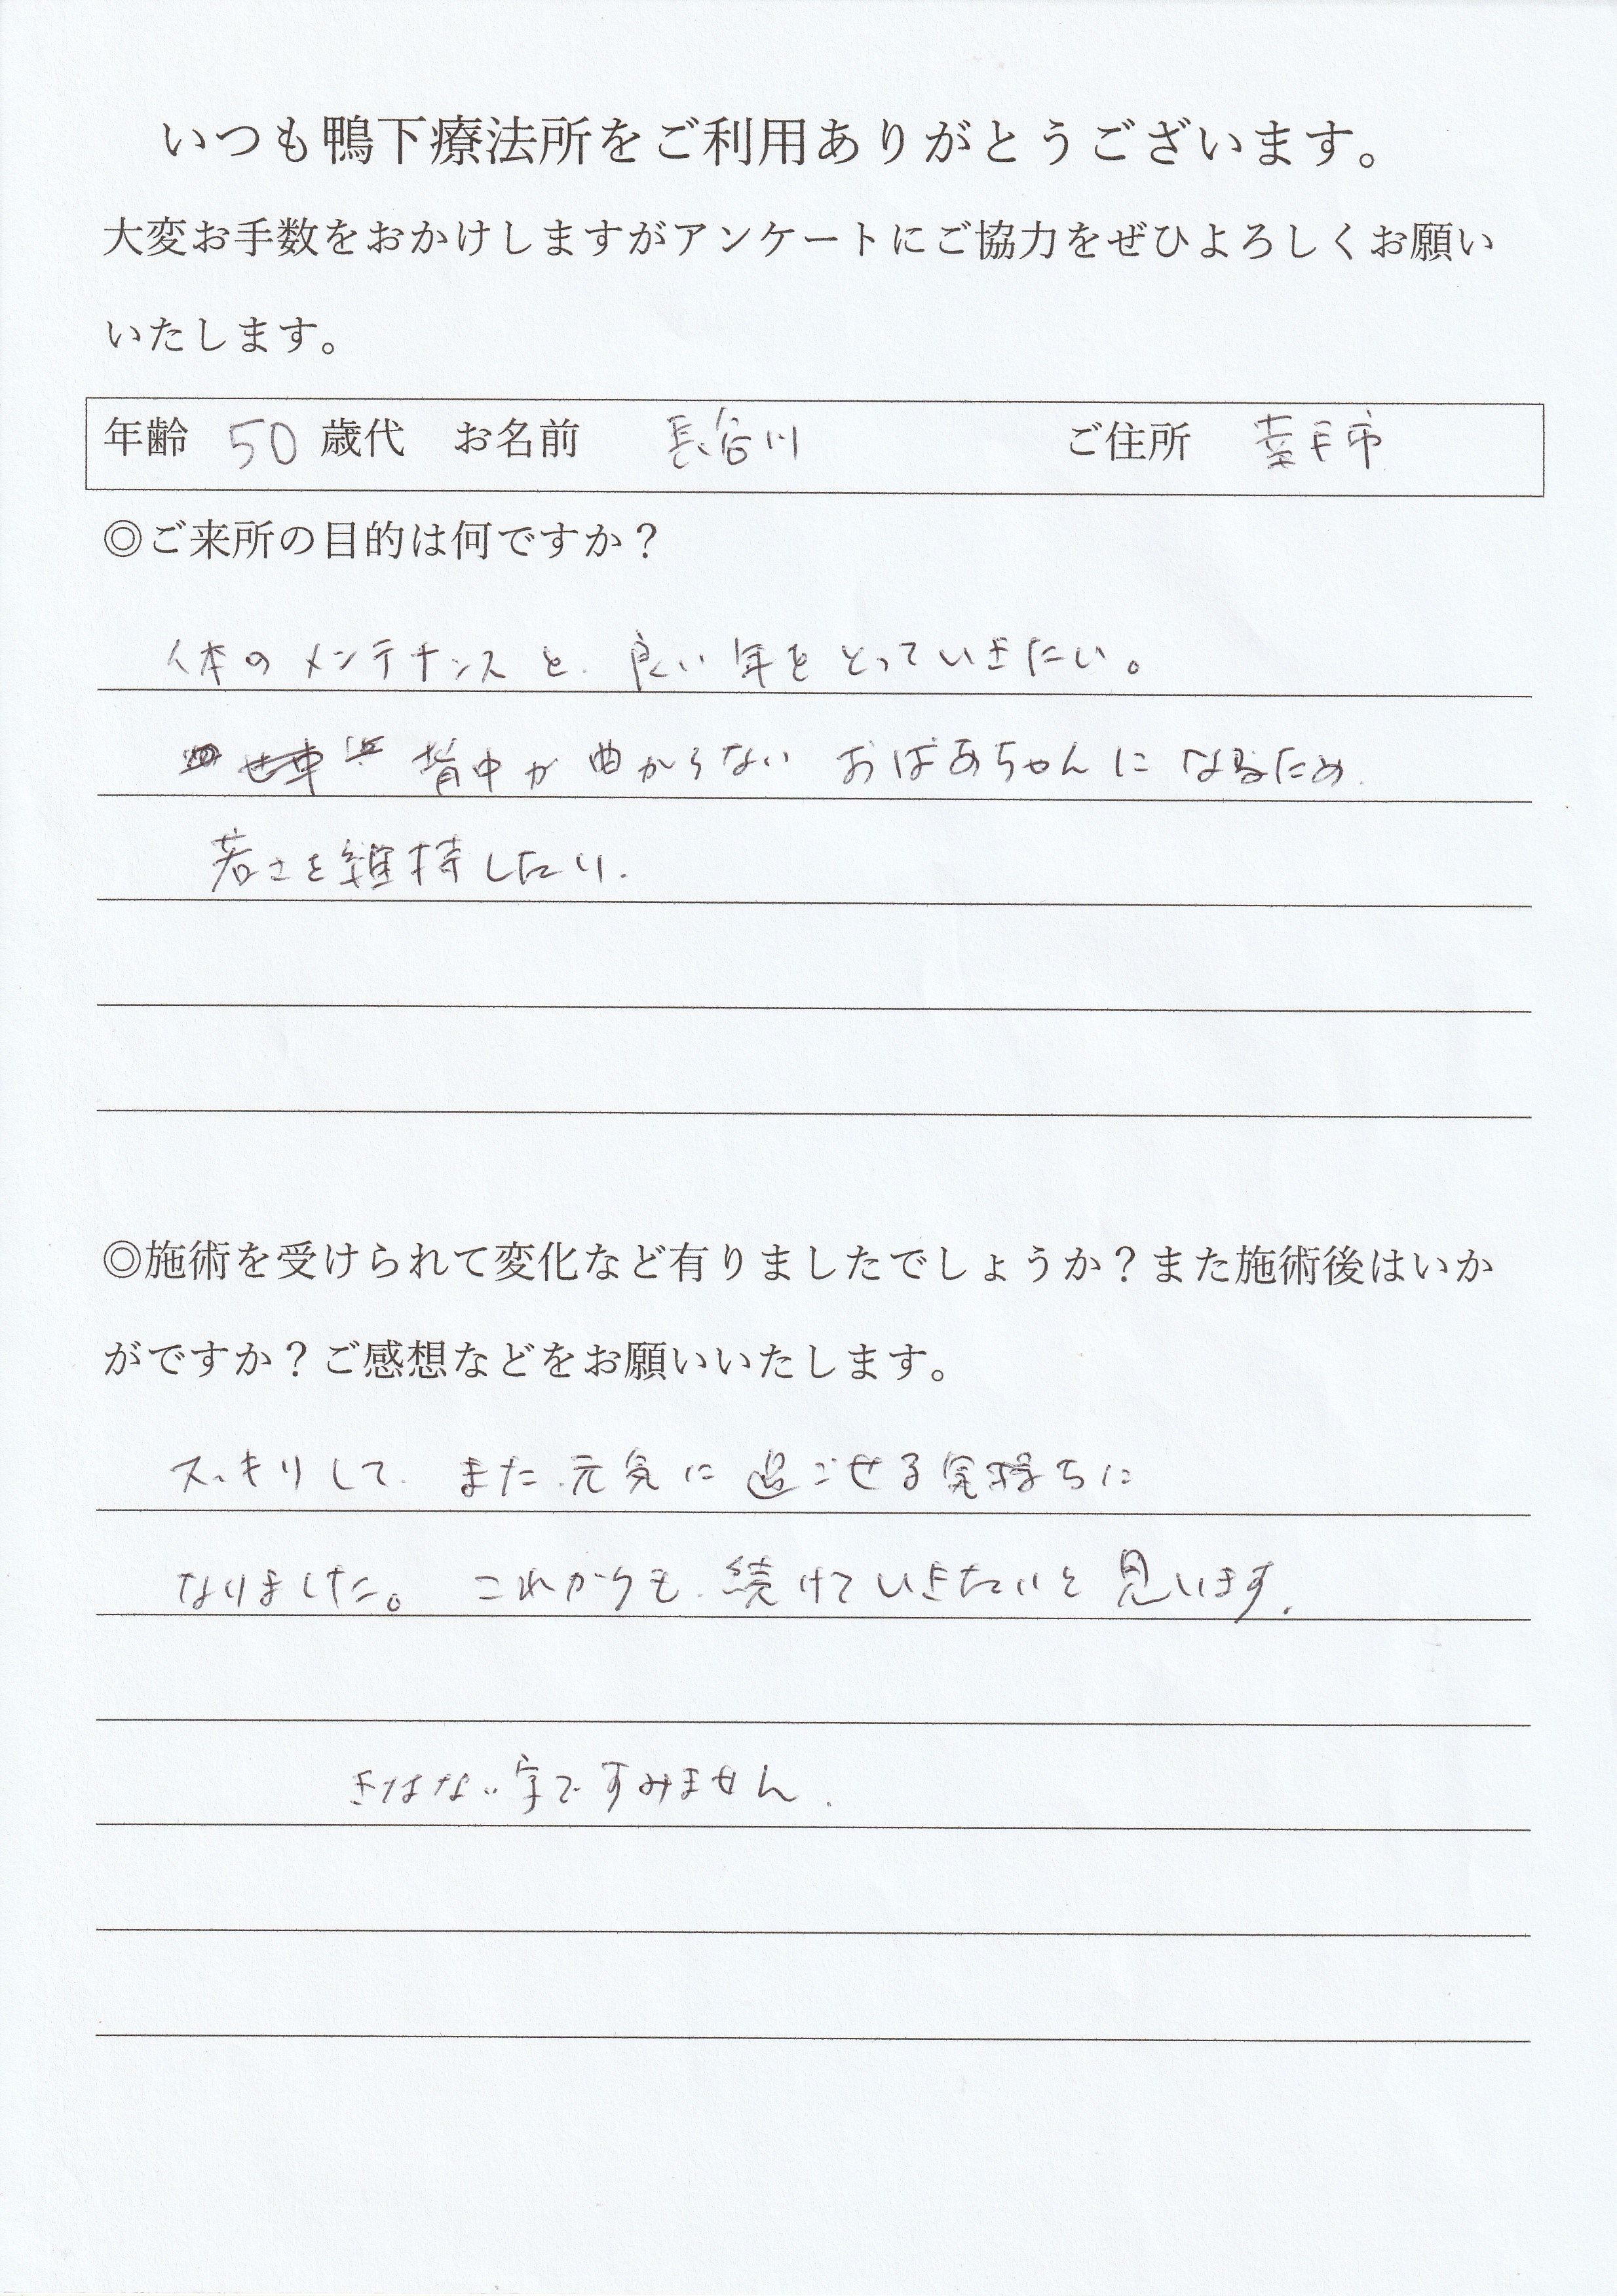 いつも鴨下療法所をご利用ありがとうございます。
大変お手数をおかけしますがアンケートにご協力をぜひよろしくお願い
いたします。
年齢 50 歳代 お名前 長谷川 ご住所 幸手市
◎ご来所の目的は何ですか？
体のメンテナンスと、良い年をとっていきたい。
背中が曲がらないおばあちゃんになるため
若さを維持したい.
◎施術を受けられて変化など有りましたでしょうか？また施術後はいか
がですか？ご感想などをお願いいたします。
スッキリして、また、元気に過ごせる気持ちに
なりました。これからも、続けていきたいと思います.
きたない字ですみません.